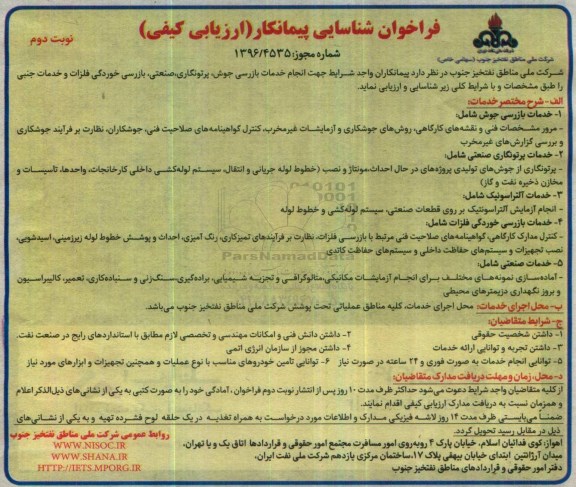 فراخوان شناسایی پیمانکار(ارزیابی کیفی)
نوبت دوم
شماره مجوز: ۱۳۹۶/۴۵۳۵
شرکت ملی نفت ایران
شرکت ملی مناطق نفتخیز جنوب (سهامی خاص)
شرکت ملی مناطق نفتخیز جنوب در نظر دارد پیمانکاران واجد شرایط جهت انجام خدمات بازرسی جوش، پرتونگاری،صنعتی، بازرسی خوردگی فلزات و خدمات جنبی
را طبق مشخصات و با شرایط کلی زیر شناسایی و ارزیابی نماید.
الف- شرح مختصر خدمات:
۱- خدمات بازرسی جوش شامل:
- مرور مشخصات فنی و نقشه‌های کارگاهی، روش‌های جوشکاری و آزمایشات غیرمخرب، کنترل گواهینامه‌های صلاحیت فنی، جوشکاران، نظارت بر فرآیند جوشکاری
و بررسی گزارش‌های غیرمخرب
۲- خدمات پرتونگاری صنعتی شامل:
- پرتونگاری از جوش‌های تولیدی پروژه‌های در حال احداث،مونتاژ و نصب (خطوط لوله جریانی و انتقال، سیستم لوله‌کشی داخلی کارخانجات، واحدها، تأسیسات و
مخازن ذخیره نفت و گاز)
۳- خدمات آلتراسونیک شامل:
- انجام آزمایش آلتراسونتیک بر روی قطعات صنعتی، سیستم لوله‌کشی و خطوط لوله
۴- خدمات بازرسی خوردگی فلزات شامل:
- کنترل مدارک کارگاهی، گواهینامه‌های صلاحیت فنی مرتبط با بازرسی فلزات، نظارت بر فرآیندهای تمیزکاری، رنگ آمیزی، احداث و پوشش خطوط لوله زیرزمینی، اسیدشویی،
نصب تجهیزات و سیستم‌های حفاظت داخلی و سیستم‌های حفاظت کاتدی
۵- خدمات صنعتی شامل:
- آماده‌سازی نمونه‌های مختلف برای انجام آزمایشات مکانیکی،متالوگرافی و تجزیه شیمیایی، براده‌گیری،سنگ‌زنی و سنباده‌کاری، تعمیر، کالیبراسیون
و بروز نگهداری دزیمترهای محیطی
ب- محل اجرای خدمات: محل اجرای خدمات، کلیه مناطق عملیاتی تحت پوشش شرکت ملی مناطق نفتخیز جنوب می‌باشد.
ج- شرایط متقاضیان:
۱- داشتن شخصیت حقوقی ۲- داشتن دانش فنی و امکانات مهندسی و تخصصی لازم مطابق با استانداردهای رایج در صنعت نفت.
۳- داشتن تجربه و توانایی ارائه خدمات ۴- داشتن مجوز از سازمان انرژی اتمی
۵- توانایی انجام خدمات به صورت فوری و ۲۴ ساعته در صورت نیاز ۶- توانایی تأمین خودروهای مناسب با نوع عملیات و همچنین تجهیزات و ابزارهای مورد نیاز
د- محل، زمان و مهلت دریافت مدارک متقاضیان:
از کلیه متقاضیان واجد شرایط دعوت می‌شود حداکثر ظرف مدت ۱۰ روز پس از انتشار نوبت دوم فراخوان، آمادگی خود را به صورت کتبی به یکی از نشانی‌های ذیل‌الذکر اعلام
و همزمان نسبت به دریافت مدارک ارزیابی کیفی اقدام نمایند.
ضمناً می‌بایستی ظرف مدت ۱۴ روز لاشه فیزیکی مدارک و اطلاعات مورد درخواست به همراه تغذیه در یک حلقه لوح فشرده تهیه و به یکی از نشانی‌های
ذیل در مقابل رسید تحویل گردد.
اهواز: کوی فدائیان اسلام، خیابان پارک ۴ روبه‌روی امور مسافرت مجتمع امور حقوقی و قراردادها اتاق یک و یا تهران،
میدان آرژانتین ابتدای خیابان بیهقی پلاک ۱۷، ساختمان مرکزی یازدهم شرکت ملی نفت ایران،
دفتر امور حقوقی و قراردادهای مناطق نفتخیز جنوب
روابط عمومی شرکت ملی مناطق نفتخیز جنوب
WWW.NISOC.IR
WWW.SHANA.IR
HTTP://IETS.MPORG.IR
ParsNamadData